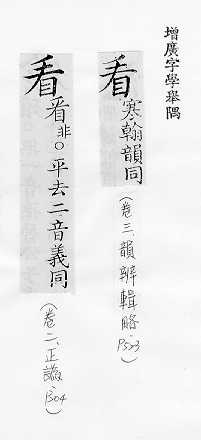 增廣字學舉隅
看寒翰韻同（卷三、韻辨輯略、P303）
看㸔非○平去二音義同（卷二、正譌、P304）